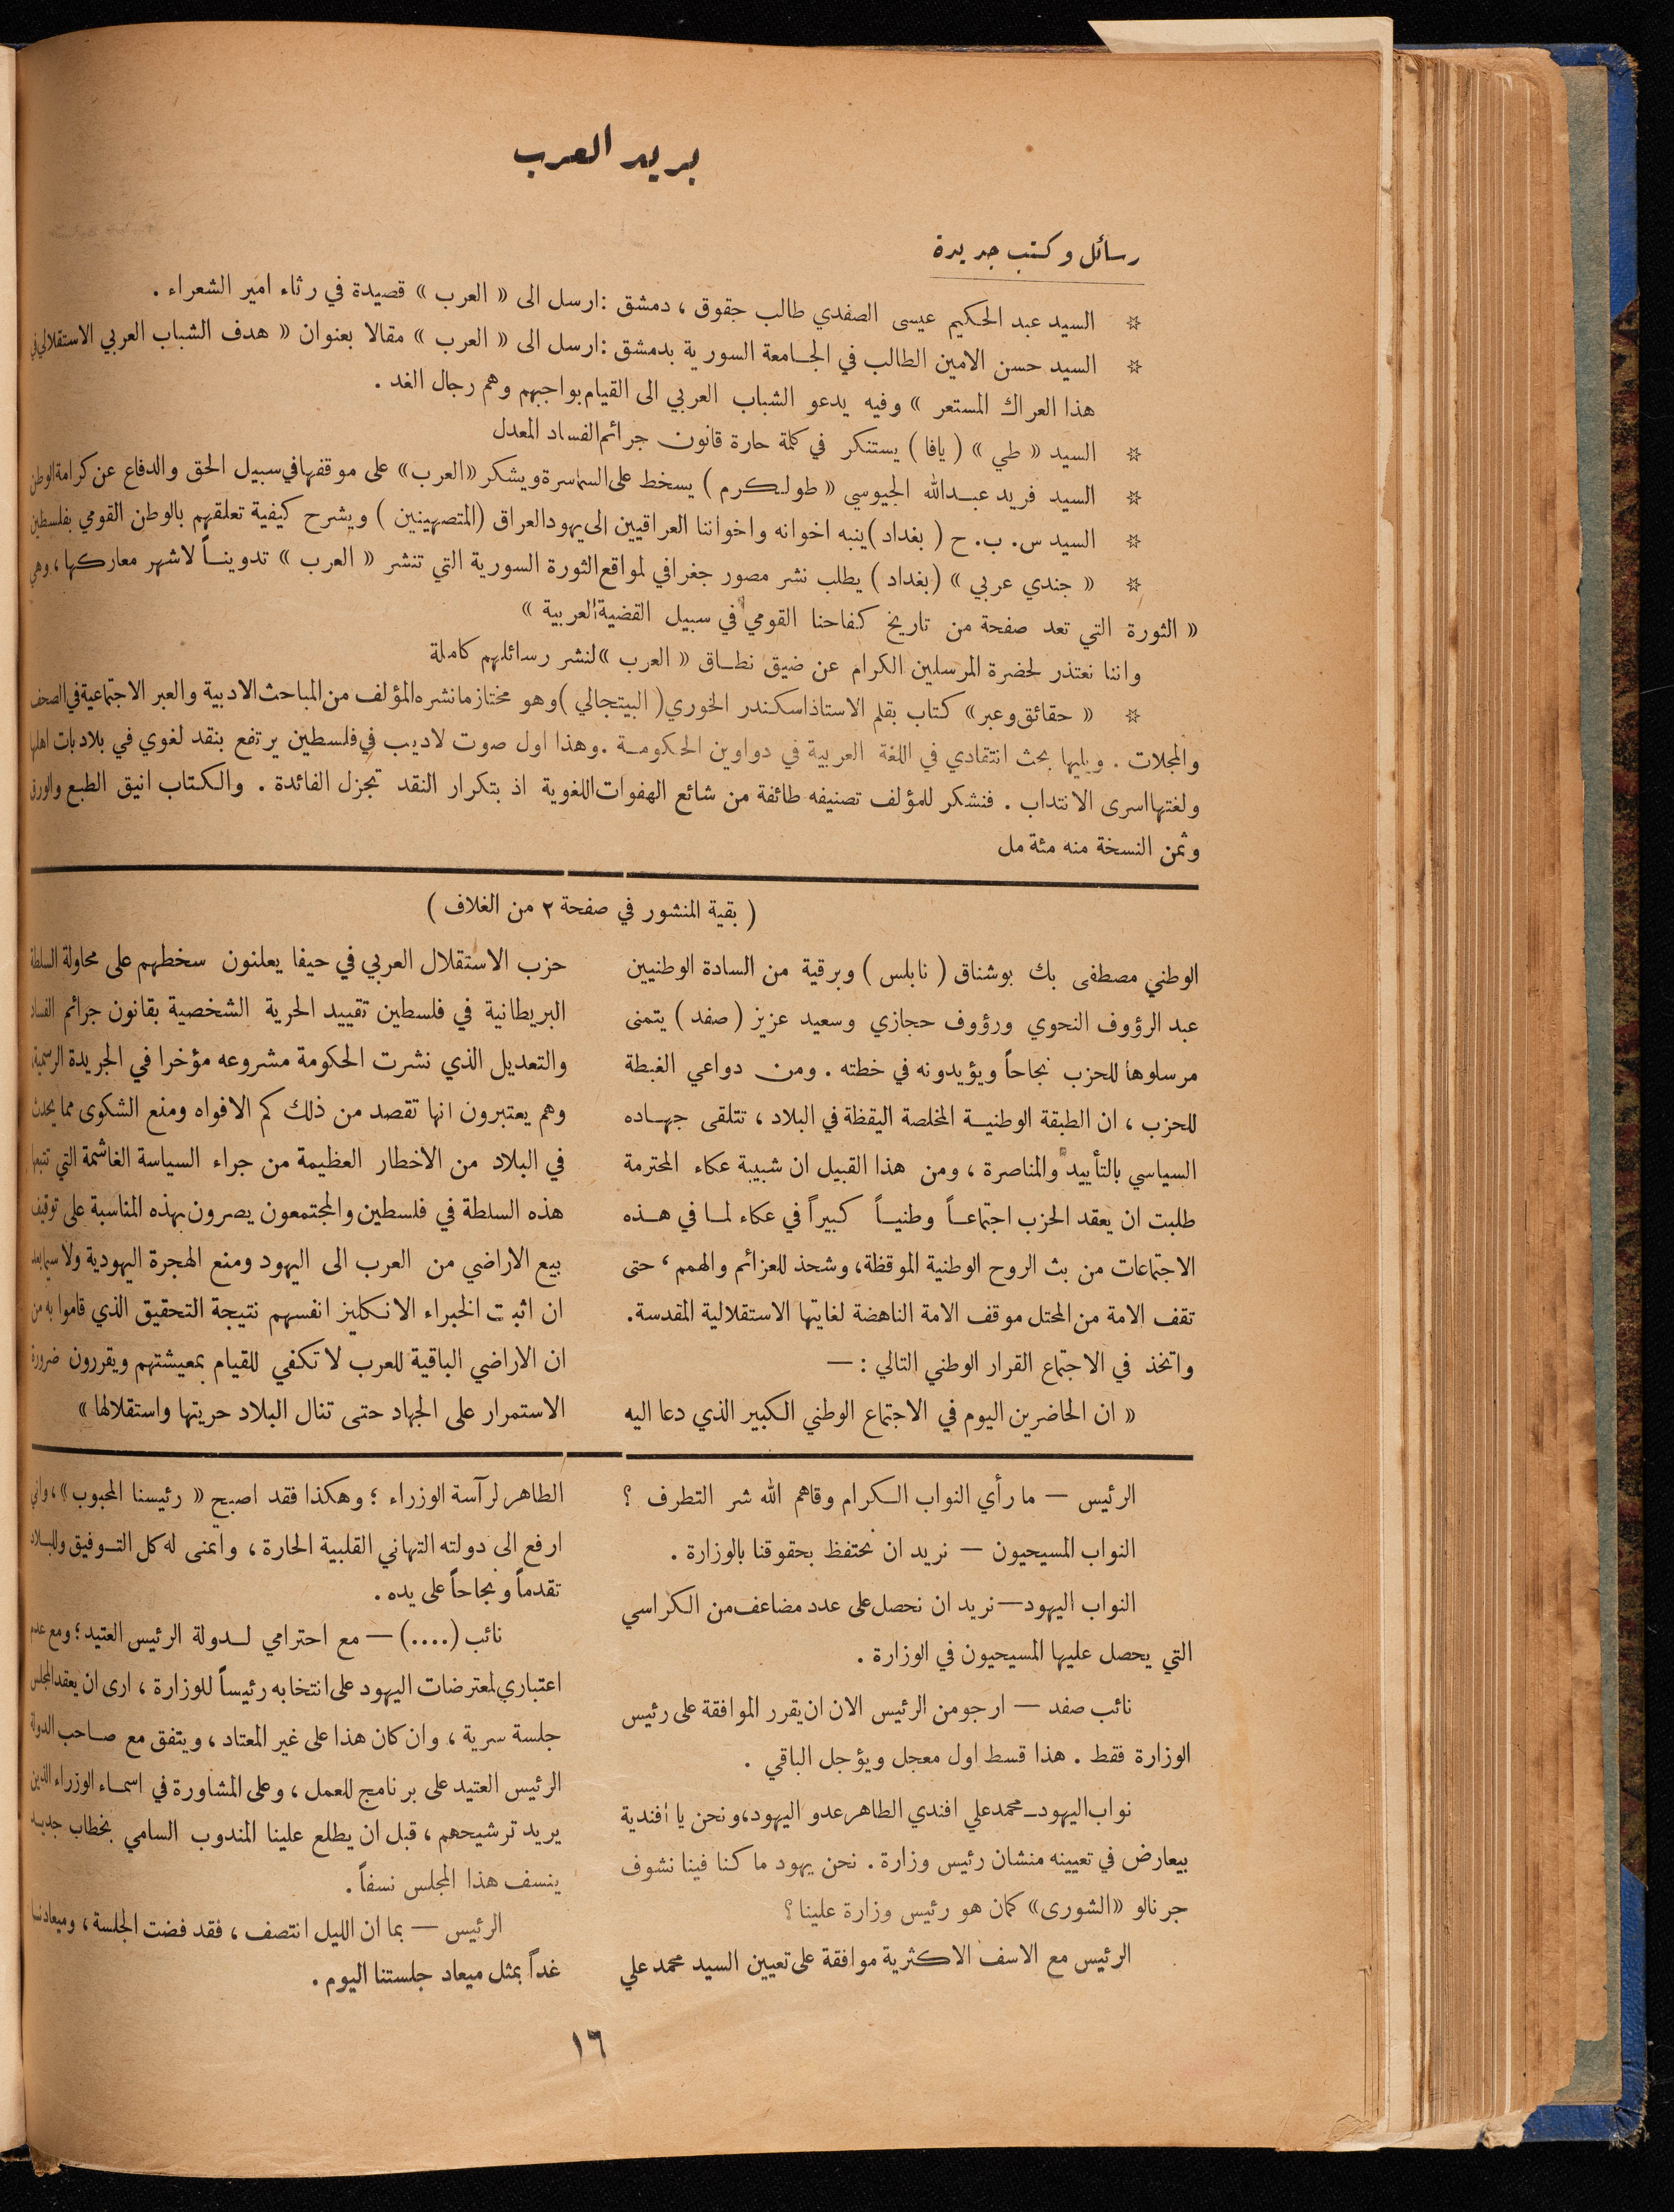 بريد العرب
رسائل وكتب جديدة
☆ السيد عبد الحكيم عيسى الصفدي طالب حقوق ، دمشق : ارسل الى « العرب » قصيدة في رثاء امير الشعراء .
☆ السيد حسن الامين الطالب في الجامعة السورية بدمشق : ارسل الى « العرب » مقالا بعنوان « هدف الشباب العربي الاستقلالي في
هذا العراك المستعر » وفيه يدعو الشباب العربي الى القيام بواجبهم وهم رجال الغد .
☆ السيد « طي » ( يافا ) يستنكر في كلمة حارة قانون جرائم الفساد المعدل
☆ السيد فريد عبدالله الجيوسي « طولكرم ) يسخط على السماسرة ويشكر « العرب » على موقفها في سبيل الحق والدفاع عن كرامة الوطن
☆ السيد س. ب. ح ( بغداد ) ينبه اخوانه واخواننا العراقيين الى يهود العراق ( المتصهينين ) ويشرح كيفية تعلقهم بالوطن القومي بفلسطين
☆ « جندي عربي » ( بغداد ) يطلب نشر مصور جغرافي لمواقع الثورة السورية التي تنشر « العرب » تدويناً لاشهر معاركها ، وهي
« الثورة التي تعد صفحة من تاريخ كفاحنا القومي في سبيل القضية العربية »
واننا نعتذر لحضرة المرسلين الكرام عن ضيق نطاق « العرب » لنشر رسائلهم كاملة
☆ « حقائق وعبر » كتاب بقلم الاستاذ اسكندر الخوري ( البيتجالي ) وهو مختار ما نشره المؤلف من المباحث الادبية والعبر الاجتماعية في الصحف
والمجلات . ويليها بحث انتقادي في اللغة العربية في دواوين الحكومة . وهذا اول صوت لاديب في فلسطين يرتفع بنقد لغوي في بلاد بات اهلها
ولغتها اسرى الانتداب . فنشكر للمؤلف تصنيفه طائفة من شائع الهفوات اللغوية اذ بتكرار النقد تجزل الفائدة . والكتاب انيق الطبع والورق
وثمن النسخة منه مئة مل
( بقية المنشور في صفحة ٢ من الغلاف )
الوطني مصطفى بك بوشناق ( نابلس ) وبرقية من السادة الوطنيين
عبد الرؤوف النحوي ورؤوف حجازي وسعيد عزيز ( صفد ) يتمنى
مرسلوها للحزب نجاحاً ويؤيدونه في خطته . ومن دواعي الغبطة
للحزب ، ان الطبقة الوطنية المخلصة اليقظة في البلاد ، تتلقى جهاده
السياسي بالتأييد والمناصرة ، ومن هذا القبيل ان شبيبة عكاء المحترمة
طلبت ان يعقد الحزب اجتماعاً وطنياً كبيراً في عكاء لما في هذه
الاجتماعات من بث الروح الوطنية الموقظة ، وشحذ للعزائم والهمم ، حتى
تقف الامة من المحتل موقف الامة الناهضة لغايتها الاستقلالية المقدسة .
واتخذ في الاجتماع القرار الوطني التالي : —
« ان الحاضرين اليوم في الاجتماع الوطني الكبير الذي دعا اليه
حزب الاستقلال العربي في حيفا يعلنون سخطهم على محاولة السلطة
البريطانية في فلسطين تقييد الحرية الشخصية بقانون جرائم الفساد
والتعديل الذي نشرت الحكومة مشروعه مؤخرا في الجريدة الرسمية
وهم يعتبرون انها تقصد من ذلك كم الافواه ومنع الشكوى مما يحدث
في البلاد من الاخطار العظيمة من جراء السياسة الغاشمة التي تتبعها
هذه السلطة في فلسطين والمجتمعون يصرون بهذه المناسبة على توقيف
بيع الاراضي من العرب الى اليهود ومنع الهجرة اليهودية ولا سيما بعد
ان اثبت الخبراء الانكليز انفسهم نتيجة التحقيق الذي قاموا به من
ان الاراضي الباقية للعرب لا تكفي للقيام بمعيشتهم ويقررون ضرورة
الاستمرار على الجهاد حتى تنال البلاد حريتها واستقلالها »
الرئيس — ما رأي النواب الكرام وقاهم الله شر التطرف ؟
النواب المسيحيون — نريد ان نحتفظ بحقوقنا بالوزارة .
النواب اليهود — نريد ان نحصل على عدد مضاعف من الكراسي
التي يحصل عليها المسيحيون في الوزارة .
نائب صفد — ارجو من الرئيس الان ان يقرر الموافقة على رئيس
الوزارة فقط . هذا قسط اول معجل ويؤجل الباقي .
نواب اليهود — محمد علي افندي الطاهر عدو اليهود ، ونحن يا أفندية
بيعارض في تعيينه منشان رئيس وزارة . نحن يهود ما كنا فينا نشوف
جرنالو « الشورى » كمان هو رئيس وزارة علينا ؟
الرئيس مع الاسف الاكثرية موافقة على تعيين السيد محمد علي
الطاهر لرآسة الوزراء ؛ وهكذا فقد اصبح « رئيسنا المحبوب » ، واني
ارفع الى دولته التهاني القلبية الحارة ، واتمنى له كل التوفيق وللبلاد
تقدماً ونجاحاً على يده .
نائب (....) — مع احترامي لدولة الرئيس العتيد ؛ ومع عدم
اعتباري لمعترضات اليهود على انتخابه رئيساً للوزارة ، ارى ان يعقد المجلس
جلسة سرية ، وان كان هذا على غير المعتاد ، ويتفق مع صاحب الدولة
الرئيس العتيد على برنامج للعمل ، وعلى المشاورة في اسماء الوزراء الذين
يريد ترشيحهم ، قبل ان يطلع علينا المندوب السامي بخطاب جديد
ينسف هذا المجلس نسفاً .
الرئيس — بما ان الليل انتصف ، فقد فضت الجلسة ، وميعادنا
غداً بمثل ميعاد جلستنا اليوم .
١٦